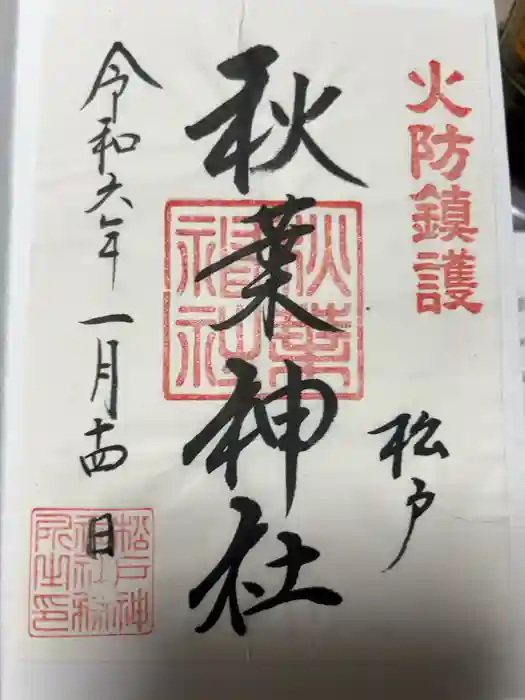 火防鎮護
松戸
秋葉神社
秋葉神社
令和六年一月十四日
松戸神
社社務
所之印